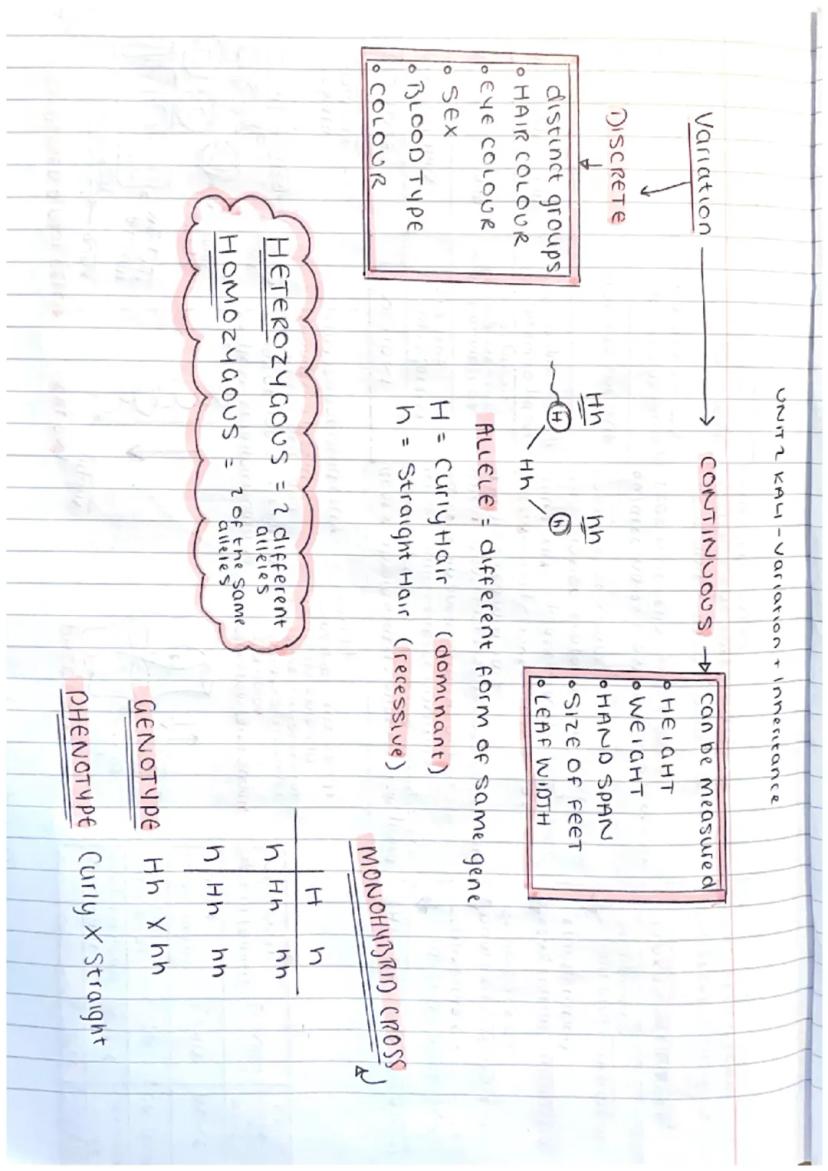 UNIT 2 KA4 - Variation + Inheritance
Variation
CONTINUOUS
can be measured
• HEIGHT
• WEIGHT
• HAND SPAN
• SIZE OF FEET
• LEAF WIDTH
DISCRETE
distinct groups
• HAIR COLOUR
• EYE COLOUR
• SEX
• BLOOD TYPE
• COLOUR
Hh hh
H h
Hh
ALLELE = different form of same gene
H = Curly Hair (dominant)
h = Straight Hair (recessive)
HETEROZYGOUS = 2 different
alleles
HOMOZYGOUS = 2 of the same
alleles
MONOHYBRID CROSS
H h
h Hh hh
h Hh hh
GENOTYPE Hh X hh
PHENOTYPE Curly X Straight